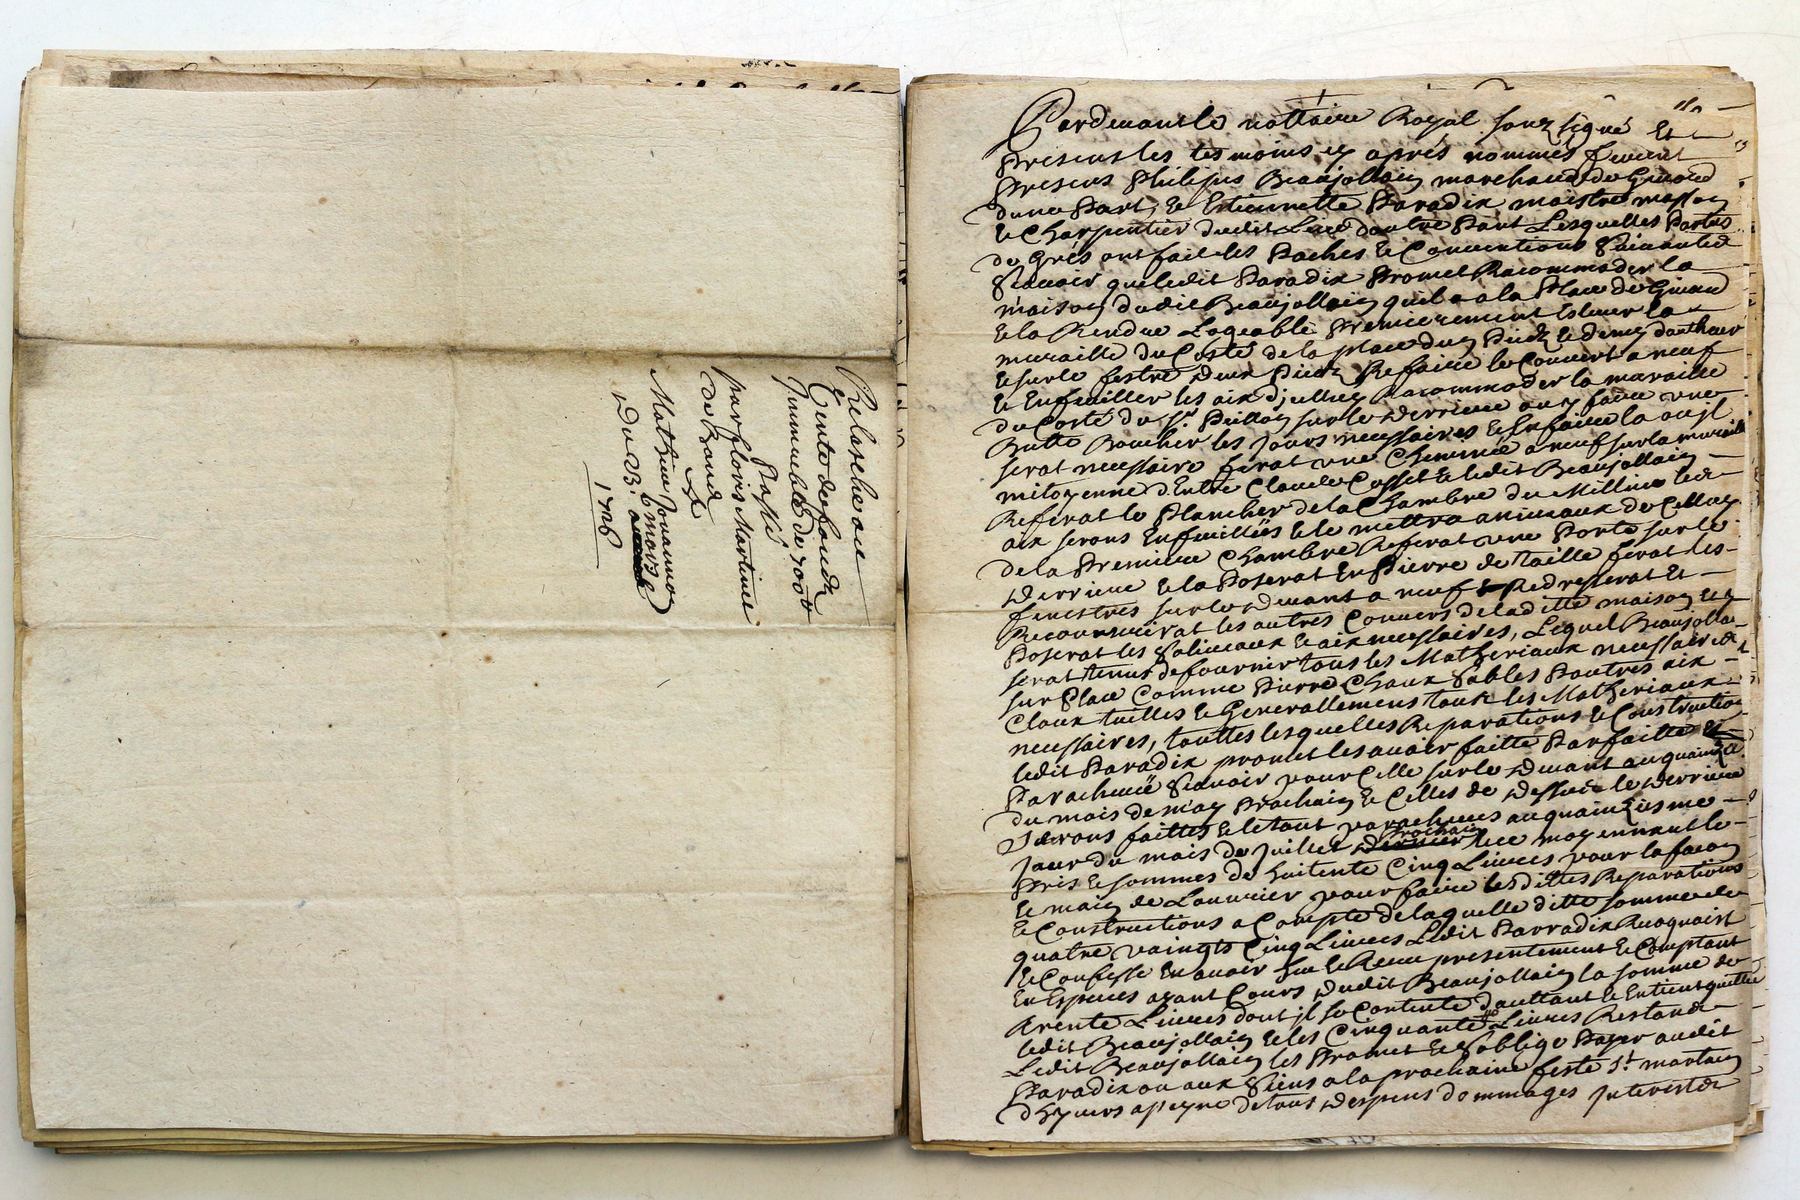 Relasche ou
Vente de fondz
Jmmeuble de 700lt
Passé
par floris Martinie
de Grand
à
Mathieu Jouannon
Du 23e mars
1726
Pardevant le nottaire Royal souz signé Et
Presens les tesmoins cy aprés nommés furent
Presens Philipes Beaujollain marchand de Givord
dune Part, & Estiennette Paradix maistre masson
& Charpentier dudit Lieu dautre Part Lesquelles Parties
de Grés ont fait les Paches & Conventions Suivantes
Scavoir que ledit Paradix Promet Racommoder la
maison dudit Beaujollain quil a a la Place de Givord
& la Rendre Logeable Premierement eslever la
muraille du Costé de la place dun Piedz & demy dautheur
& sur le festre deux Piedz Refaire le Couvert a neuf
& Enfeuiller les aix djcelluy Racommoder la muraille
du Costé du Sr. sur le derriere ou y faire une
Butte Boucher les Jours necessaires & En faire la ou jl
serat necessaire ferat une Cheminée a neuf sur la muraille
mitoyenne d'Entre Claude & ledit Beaujollain
Referat le Plancher de la Chambre du Millieu les
aix serons Enfeuillés & le mettra a niveaux de Celluy
de la Premiere Chambre Referat une Porte sur le
derriere & la Poserat En Pierre de taille ferat les
fenestres sur le devant a neuf Redresserat Et
Recouvrirat les autres Couvers de laditte maison & y
Poserat les Soliveaux & aix necessaires, Lequel Beaujollain
serat tenus de fournir tous les Matheriaux necessaires
sur Place Comme Pierre Chaux Sables Poutres aix
Cloux tuilles & Generallemens tous les Matheriaux
necessaires, touttes lesquelles Reparations & Construction
ledit Paradix promet les avoir faitte Parfaitte &
Paracheveé Scavoir pour Celle sur le devant au quainze
du mois de may Prochain & Celles de dessus le derriere
Serons faittes & le tout paracheves au quainziesme
Jour du mois de Juillet prochain & ce moyennant le
Pris & sommes de huitente Cinq Livres pour la facon
& main de Louvrier pour faire lesdittes Reparations
& Constructions a Compte de laquelle ditte somme de
quatre vaingts Cinq Livres Ledit Parradix Recognoist
& Confesse En avoir heu & Receu presentement & Comptant
En Especes ayant Cours dudit Beaujollain la somme de
trente Livres dont jl se Contente d'aultant & Entient quitte
ledit Beaujollain & les Cinquante Livres Restand
Ledit Beaujollain les Promet & S'oblige Payer audit
Paradix ou aux Siens a la prochaine feste St. martain
dhyvers a peyne de tous despens dommages Jnterestz